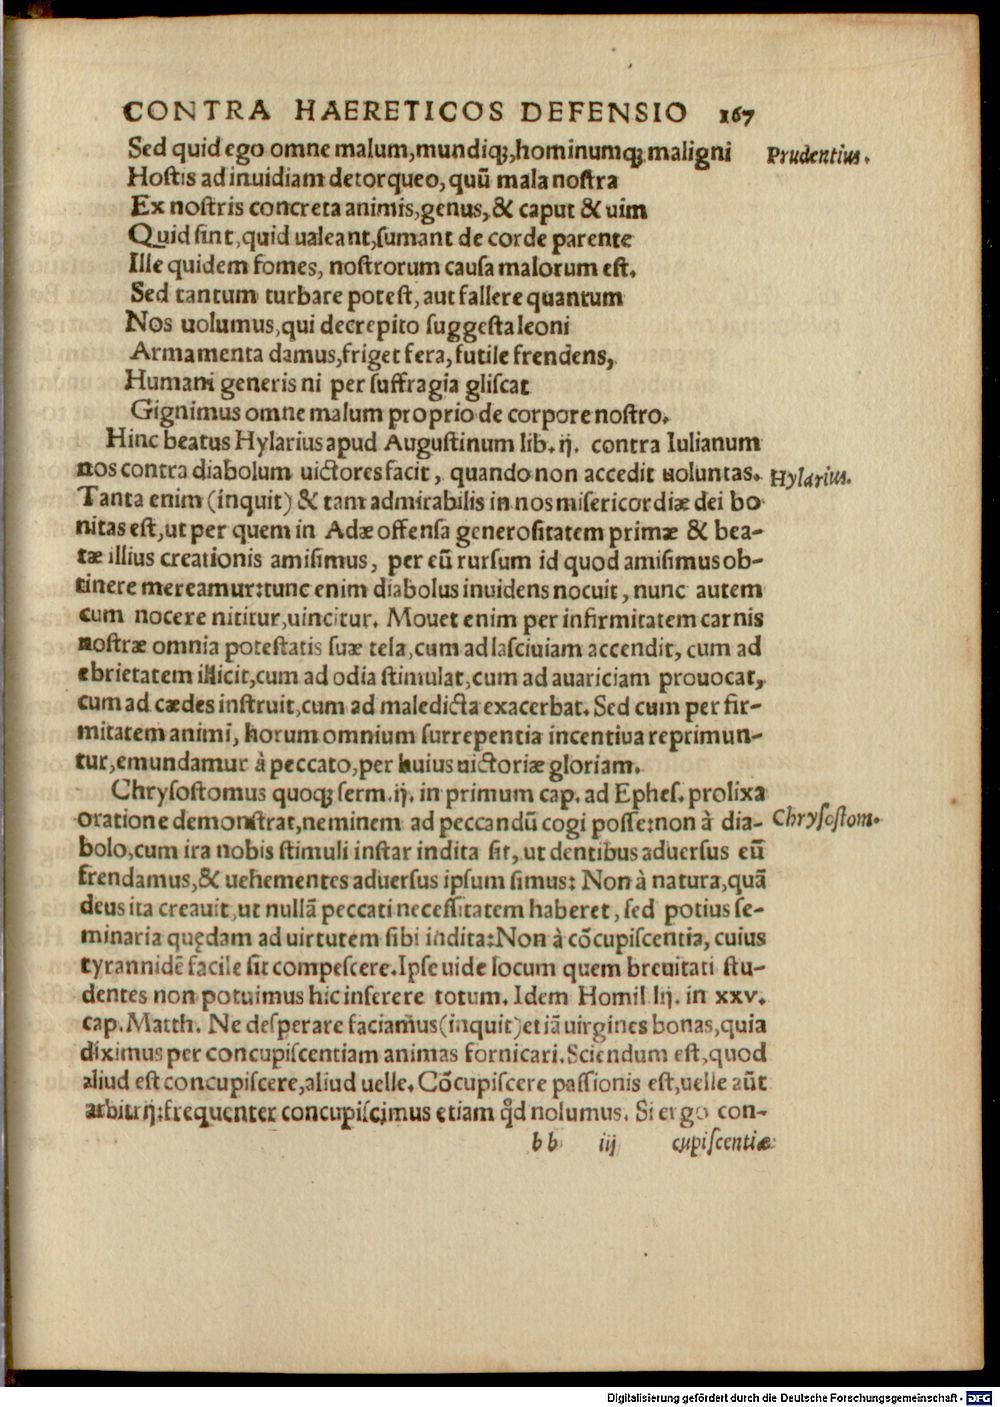 CONTRA HAERETICOS DEFENSIO 167
Sed quid ego omne malum, mundiq;, hominumq; maligni Prudentius.
Hostis ad inuidiam detorqueo, quũ mala nostra
Ex nostris concreta animis, genus, & caput & uim
Quid sint, quid ualeant, sumant de corde parente
Ille quidem fomes, nostrorum causa malorum est.
Sed tantum turbare potest, aut fallere quantum
Nos uolumus, qui decrepito suggesta leoni
Armamenta damus, friget fera, futile frendens,
Humani generis ni per suffragia gliscat
Gignimus omne malum proprio de corpore nostro.
Hinc beatus Hylarius apud Augustinum lib. ij. contra Iulianum
nos contra diabolum uictores facit, quando non accedit uoluntas. Hylarius.
Tanta enim (inquit) & tam admirabilis in nos misericordiæ dei bo
nitas est, ut per quem in Adæ offensa generositatem primæ & bea-
tæ illius creationis amisimus, per eũ rursum id quod amisimus ob-
tinere mereamur: tunc enim diabolus inuidens nocuit, nunc autem
cum nocere nititur, uincitur. Mouet enim per infirmitatem carnis
nostræ omnia potestatis suæ tela, cum ad lasciuiam accendit, cum ad
ebrietatem illicit, cum ad odia stimulat, cum ad auariciam prouocat,
cum ad cædes instruit, cum ad maledicta exacerbat. Sed cum per fir-
mitatem animi, horum omnium surrepentia incentiua reprimun-
tur, emundamur à peccato, per huius uictoriæ gloriam.
Chrysostomus quoq; serm. ij. in primum cap. ad Ephes. prolixa
oratione demonstrat, neminem ad peccandũ cogi posse: non à dia- Chrysostom.
bolo, cum ira nobis stimuli instar indita sit, ut dentibus aduersus eũ
frendamus, & uehementes aduersus ipsum simus: Non à natura, quã
deus ita creauit, ut nullã peccati necessitatem haberet, sed potius se-
minaria quędam ad uirtutem sibi indita: Non à cõcupiscentia, cuius
tyrannidẽ facile sit compescere. Ipse uide locum quem breuitati stu-
dentes non potuimus hic inserere totum. Idem Homil lij. in xxv.
cap. Matth. Ne desperare faciamus (inquit) etiã uirgines bonas, quia
diximus per concupiscentiam animas fornicari. Sciendum est, quod
aliud est concupiscere, aliud uelle. Cõcupiscere passionis est, uelle aũt
arbitrij: frequenter concupiscimus etiam qd nolumus. Si ergo con-
bb iij cupiscentiæ
Digitalisierung gefördert durch die Deutsche Forschungsgemeinschaft - DFG